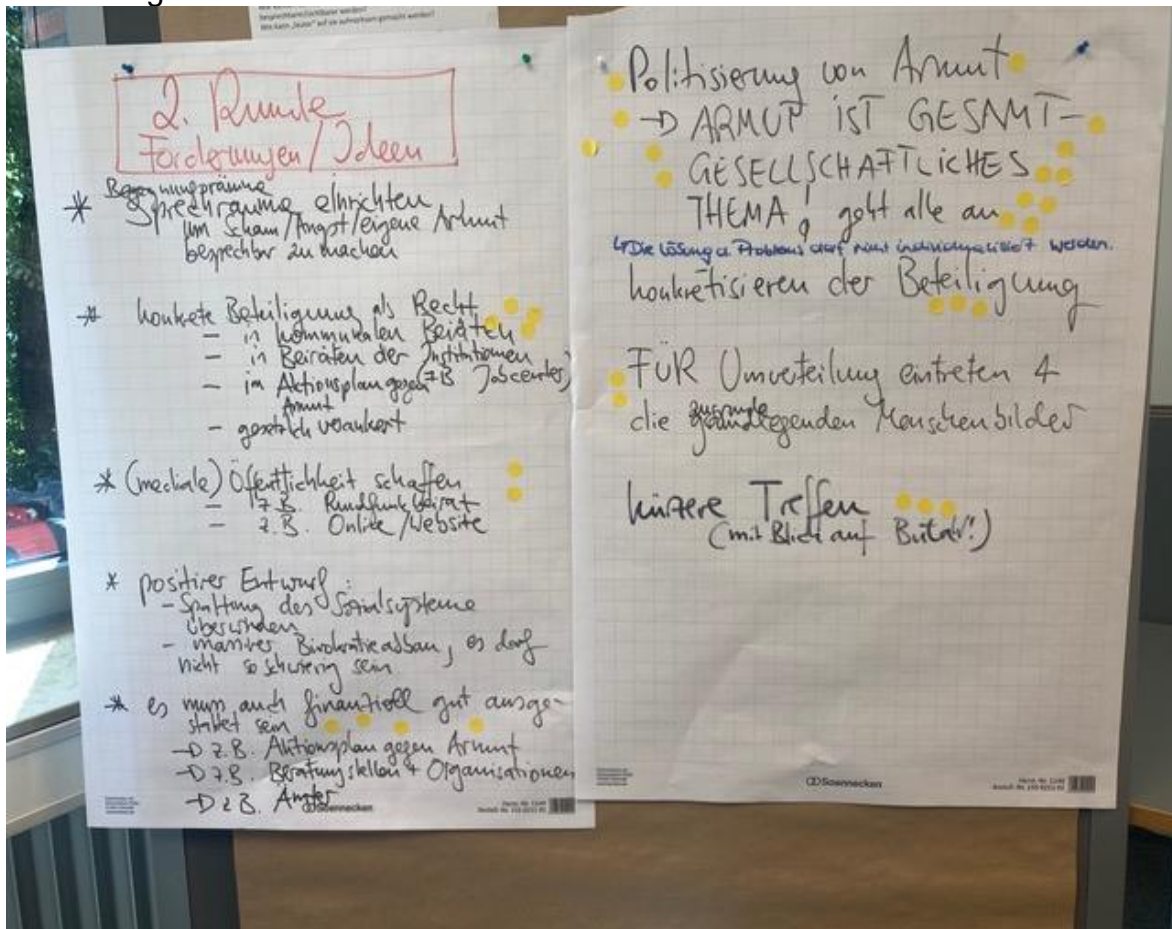 besprechbarer/sichtbarer werden?
Wie kann „lauter" auf sie aufmerksam gemacht werden?
2. Runde
Forderungen / Ideen
* Sprechräume einrichten
um Scham/Angst/eigene Armut
besprechbar zu machen
* konkrete Beteiligung als Recht
- in kommunalen Beiräten
- in Beiräten der Institutionen
- im Aktionsplan gegen (z.B. Jobcenter)
Armut
- gesetzlich verankert
* (mediale) Öffentlichkeit schaffen
- z.B. Rundfunkbeirat
- z.B. Online/Website
* positiver Entwurf:
- Spaltung der Sozialsysteme
überwinden
- massiver Bürokratieabbau, es darf
nicht so schwierig sein
* es muss auch finanziell gut ausge-
stattet sein
→ z.B. Aktionsplan gegen Armut
→ z.B. Beratungsstellen + Organisationen
→ z.B. Ämter
Soennecken
Politisierung von Armut
→ ARMUT IST GESAMT-
GESELLSCHAFTLICHES
THEMA! geht alle an
↳ Die Lösung d. Problems darf nicht individualisiert werden.
konkretisieren der Beteiligung
FÜR Umverteilung eintreten &
die zugrundeliegenden Menschenbilder
kürzere Treffen
(mit Blick auf
Soennecken